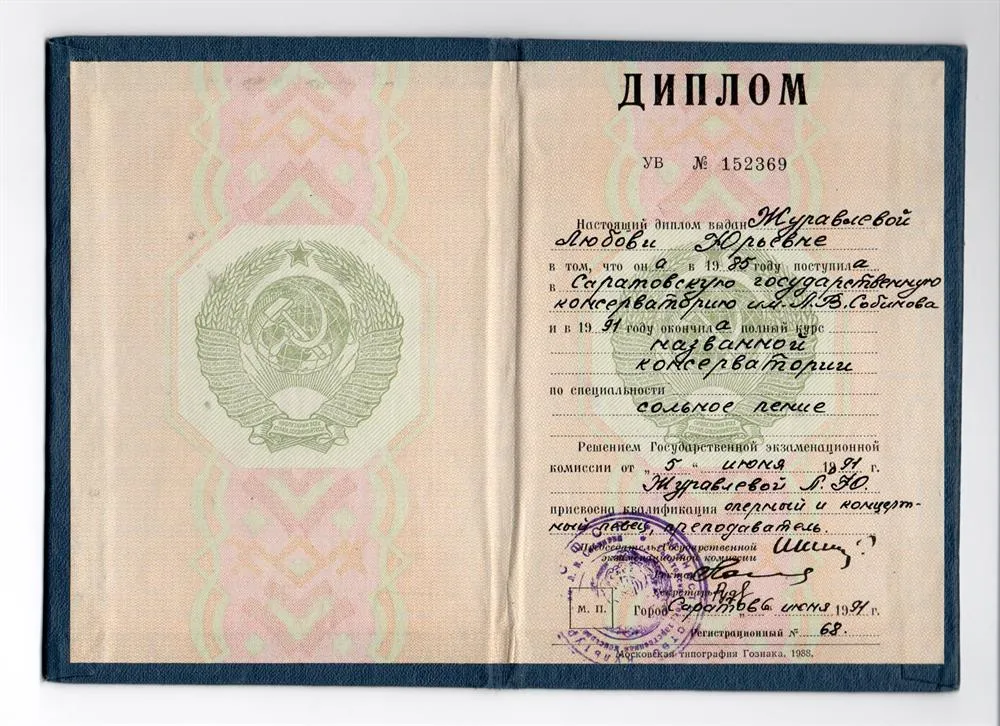 ДИПЛОМ
УВ № 152369
Настоящий диплом выдан Журавлевой
Любови Юрьевне
в том, что она в 1985 году поступила
в Саратовскую государственную
консерваторию им. Л.В. Собинова
и в 1991 году окончила полный курс
названной
консерватории
по специальности
сольное пение
Решением Государственной экзаменационной
комиссии от „5" июня 1991 г.
Журавлевой Л. Ю.
присвоена квалификация оперный и концерт-
ный певец, преподаватель.
Председатель Государственной
экзаменационной комиссии
Ректор
Секретарь
М. П.
Город Саратов „6" июня 1991 г.
Регистрационный № 68.
Московская типография Гознака. 1988.